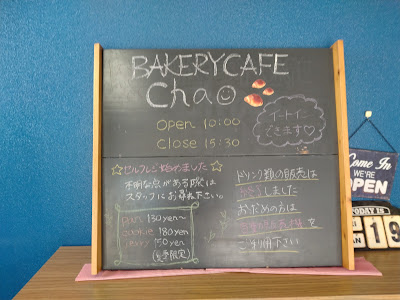 BAKERYCAFE
Chao
イートイン
できます♡
open 10:00
close 15:30
☆セルフレジ始めました☆
不明な点がある際には
スタッフにお尋ね下さい。
pan 130yen~
cookie 180yen
150yen
(夏季限定)
ドリンク類の販売は
終了しました
おだめの方は
を
ご利用下さい
Come In
WE'RE
OPEN
TODAY IS
19